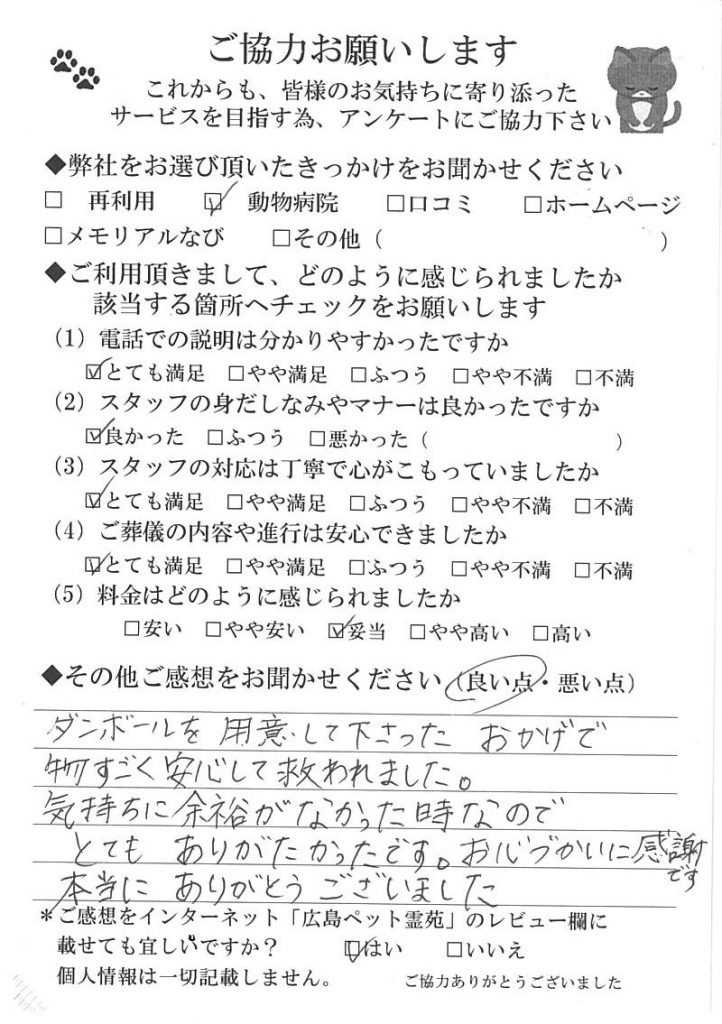 ご協力お願いします
これからも、皆様のお気持ちに寄り添った
サービスを目指す為、アンケートにご協力下さい
◆弊社をお選び頂いたきっかけをお聞かせください
□ 再利用 ☑ 動物病院 □口コミ □ホームページ
□メモリアルなび □その他（ ）
◆ご利用頂きまして、どのように感じられましたか
該当する箇所へチェックをお願いします
（1）電話での説明は分かりやすかったですか
☑とても満足 □やや満足 □ふつう □やや不満 □不満
（2）スタッフの身だしなみやマナーは良かったですか
☑良かった □ふつう □悪かった（ ）
（3）スタッフの対応は丁寧で心がこもっていましたか
☑とても満足 □やや満足 □ふつう □やや不満 □不満
（4）ご葬儀の内容や進行は安心できましたか
☑とても満足 □やや満足 □ふつう □やや不満 □不満
（5）料金はどのように感じられましたか
□安い □やや安い ☑妥当 □やや高い □高い
◆その他ご感想をお聞かせください（良い点・悪い点）
ダンボールを 用意して下さった おかげで
物すごく安心して救われました。
気持ちに余裕がなかった時なので
とても ありがたかったです。お心づかいに感謝
です
本当に ありがとう ございました
＊ご感想をインターネット「広島ペット霊苑」のレビュー欄に
載せても宜しいですか？ ☑はい □いいえ
個人情報は一切記載しません。 ご協力ありがとうございました